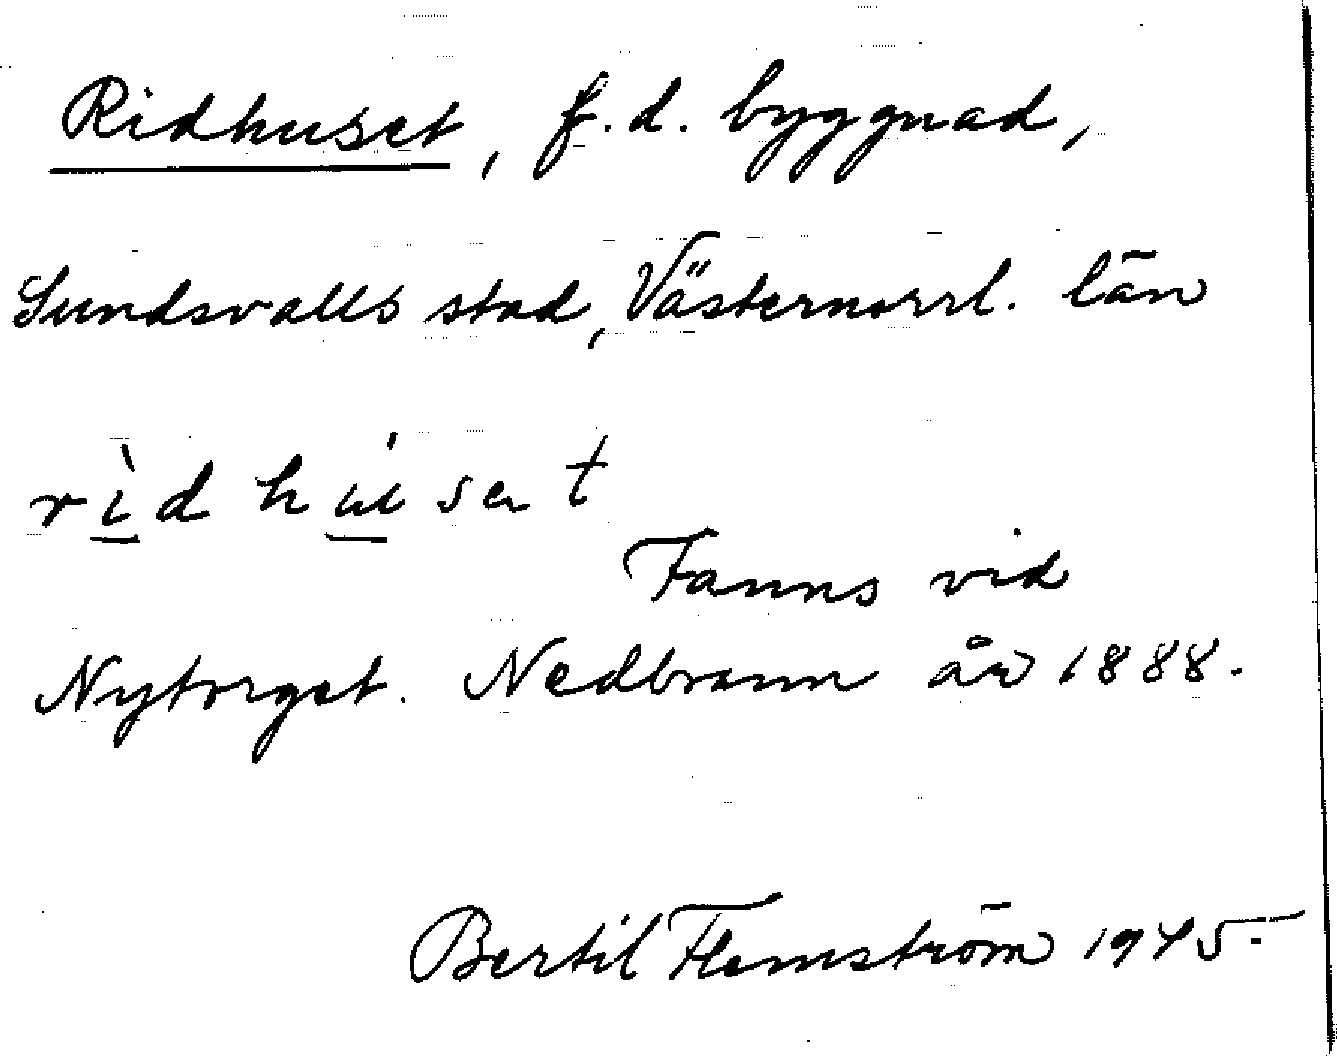 Ridhuset, f.d. byggnad,
Sundsvalls stad, Västernorrl. län
rìd húset
Fanns vid
Nytorget. Nedbrann år 1888.
Bertil Flemström 1945.